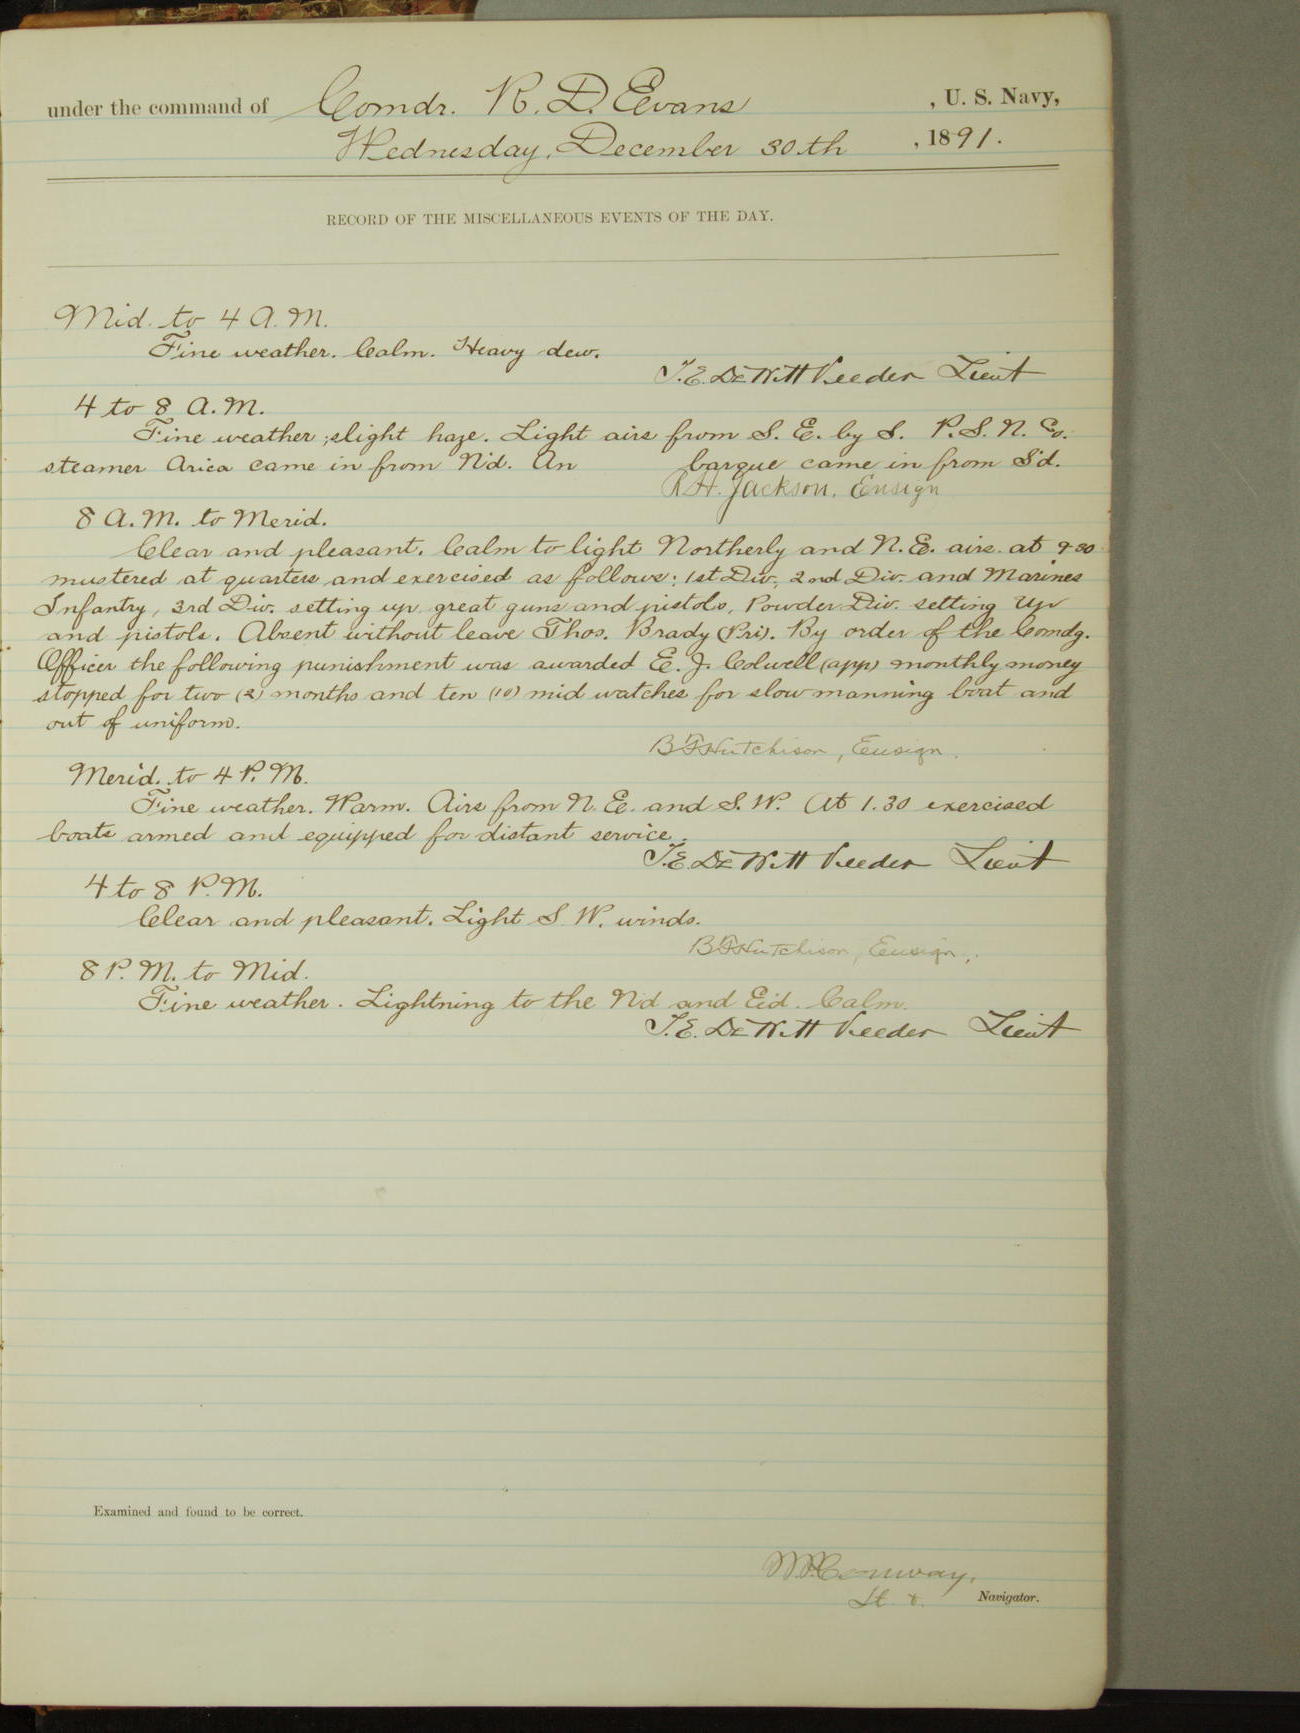 under the command of Comdr. R. D. Evans, U. S. Navy,
Wednesday, December 30th, 1891.
RECORD OF THE MISCELLANEOUS EVENTS OF THE DAY.
Mid. to 4 A.M.
Fine weather. Calm. Heavy dew.
T.E. DeWitt Veeder Lieut
4 to 8 A.M.
Fine weather; slight haze. Light airs from S. E. by S. P. S. N. Co.
steamer Arica came in from N'd. An barque came in from S'd.
R.H. Jackson, Ensign
8 A.M. to Merid.
Clear and pleasant. Calm to light Northerly and N.E. airs. at 9 30
mustered at quarters and exercised as follows: 1st Div., 2nd Div. and Marines
Infantry, 3rd Div. setting up, great guns and pistols, Powder Div. setting up
and pistols. Absent without leave Thos. Brady (Pri). By order of the Comdg.
Officer the following punishment was awarded E. J. Colwell (app) monthly money
stopped for two (2) months and ten (10) mid watches for slow manning boat and
out of uniform.
B F Hutchison, Ensign.
Merid. to 4 P.M.
Fine weather. Warm. Airs from N.E. and S.W. At 1.30 exercised
boats armed and equipped for distant service.
T.E. DeWitt Veeder Lieut
4 to 8 P.M.
Clear and pleasant. Light S.W. winds.
B F Hutchison, Ensign.
8 P.M. to Mid.
Fine weather. Lightning to the N'd and E'd. Calm.
T.E. DeWitt Veeder Lieut
Examined and found to be correct.
W P Conway,
Lt. & Navigator.